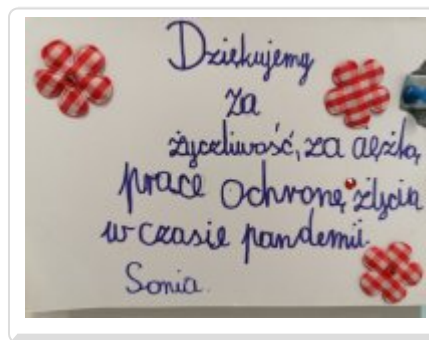 Dziękujemy
za
życzliwość, za ciężką
pracę ochronę życia
w czasie pandemii.
Sonia.